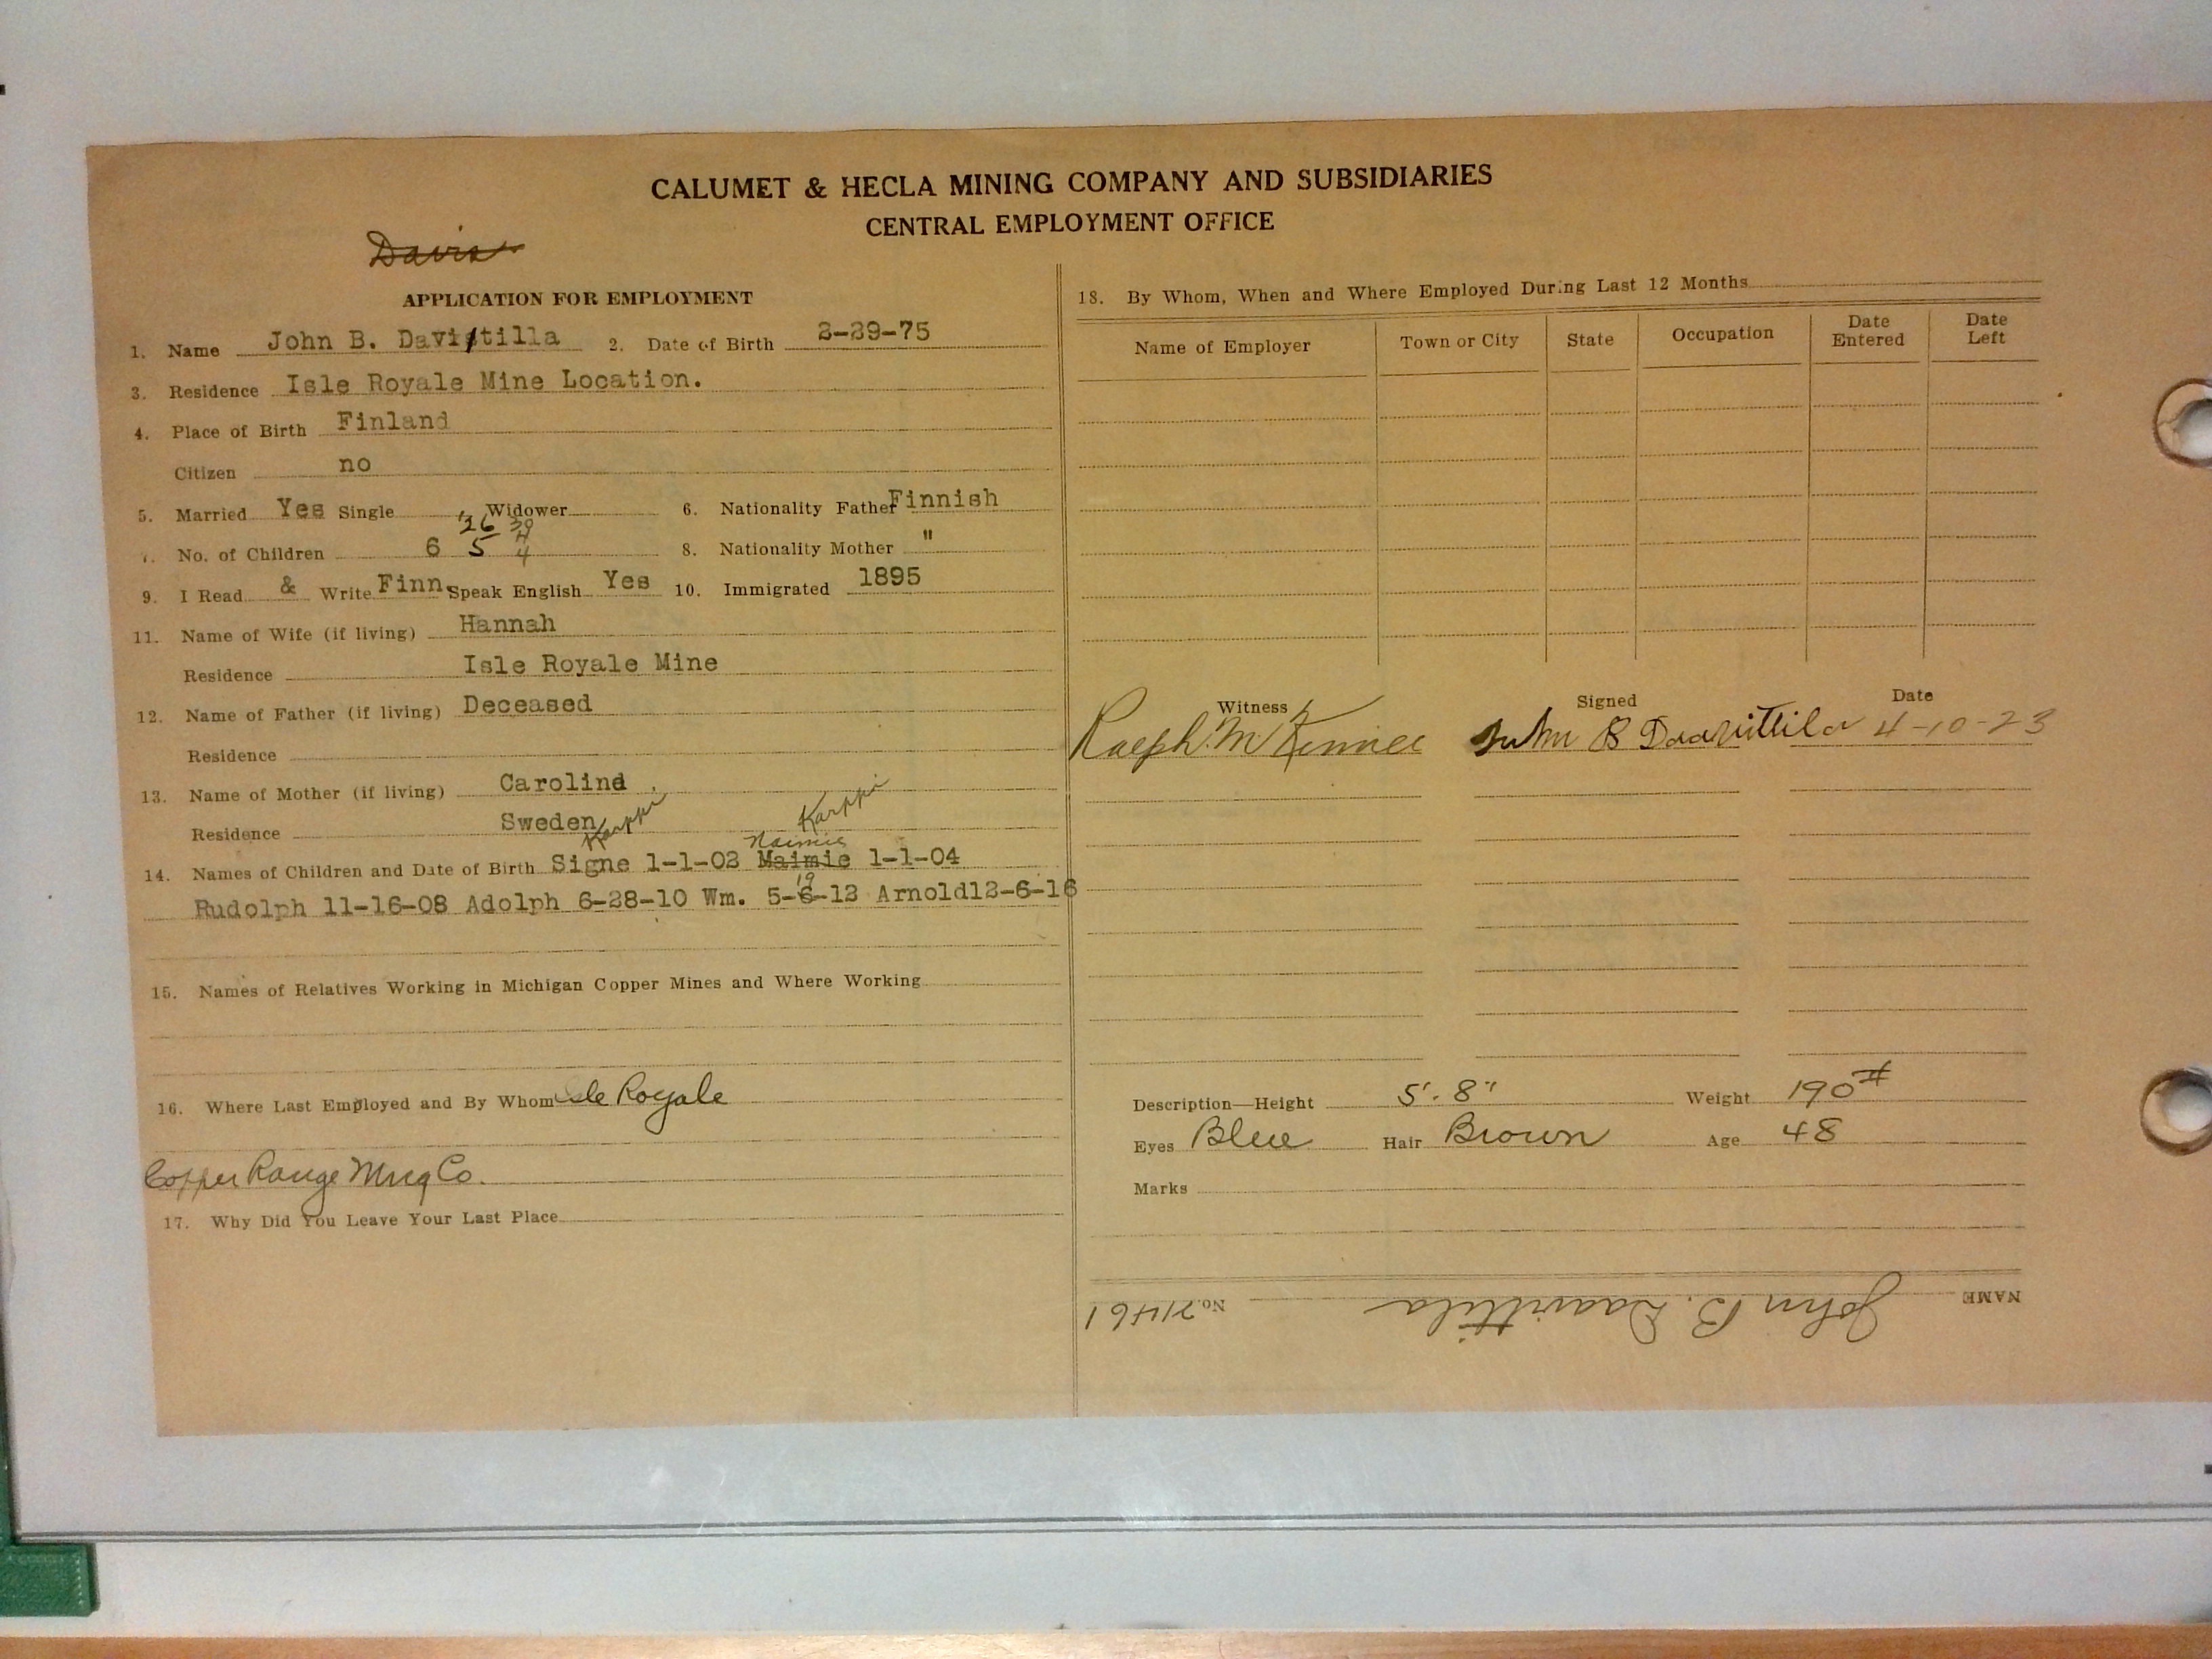 CALUMET & HECLA MINING COMPANY AND SUBSIDIARIES
CENTRAL EMPLOYMENT OFFICE
Davis
APPLICATION FOR EMPLOYMENT
1. Name John B. Davittilla 2. Date of Birth 2-29-75
3. Residence Isle Royale Mine Location.
4. Place of Birth Finland
Citizen no
5. Married Yes Single Widower 6. Nationality Father Finnish
'26 39
7. No. of Children 6 5 4 8. Nationality Mother "
9. I Read & Write Finn. Speak English Yes 10. Immigrated 1895
11. Name of Wife (if living) Hannah
Residence Isle Royale Mine
12. Name of Father (if living) Deceased
Residence
13. Name of Mother (if living) Carolina
Residence Sweden
Karppi Karppi
Naimie
14. Names of Children and Date of Birth Signe 1-1-02 Maimie 1-1-04
19
Rudolph 11-16-08 Adolph 6-28-10 Wm. 5-6-12 Arnold12-6-16
15. Names of Relatives Working in Michigan Copper Mines and Where Working
16. Where Last Employed and By Whom Isle Royale
Copper Range Mng Co.
17. Why Did You Leave Your Last Place
18. By Whom, When and Where Employed During Last 12 Months
Name of Employer Town or City State Occupation Date Entered Date Left
Witness Signed Date
Ralph McKinnee John B Daavittila 4-10-23
Description—Height 5'. 8" Weight 190#
Eyes Blue Hair Brown Age 48
Marks
NAME John B. Daavittila No. 71461